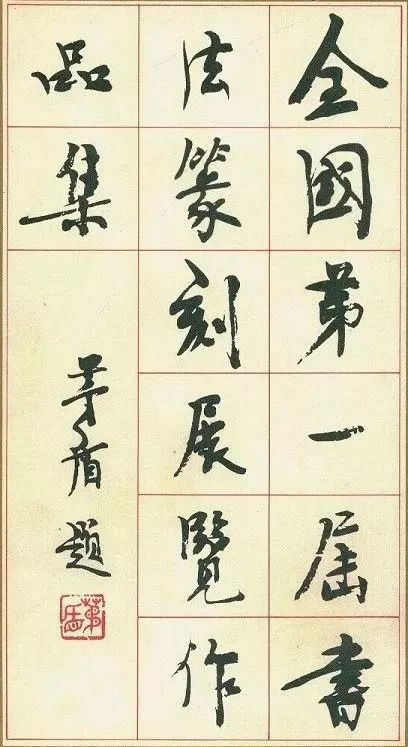 全國第一屆書
法篆刻展覽作
品集
茅盾題